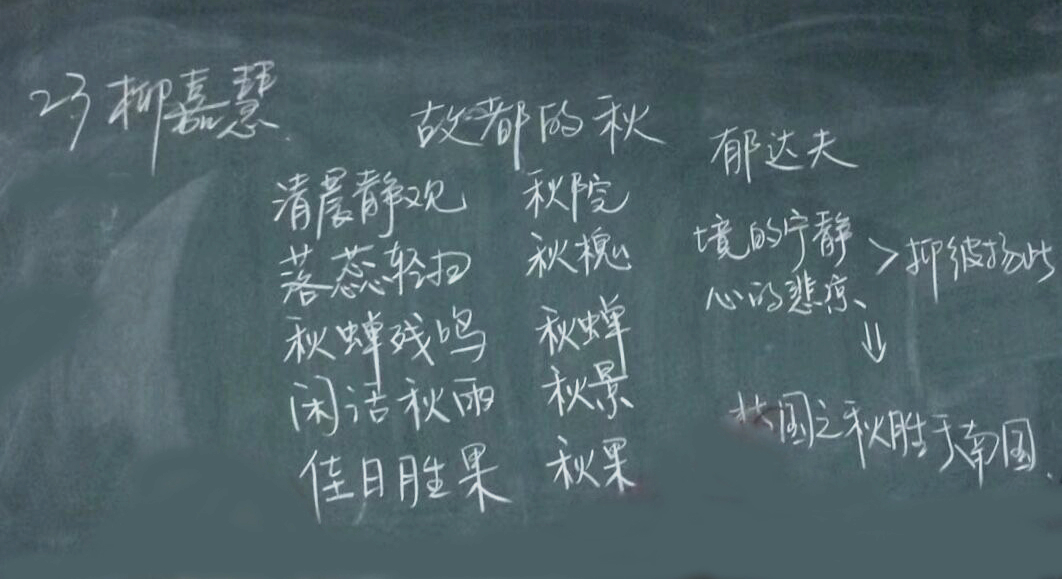 23 柳嘉慧
故都的秋
郁达夫
清晨静观 秋院
落蕊轻扫 秋槐
秋蝉残鸣 秋蝉
闲话秋雨 秋景
佳日胜果 秋果
境的宁静
心的悲凉
> 抑彼扬此
⇓
国之秋胜于南国.